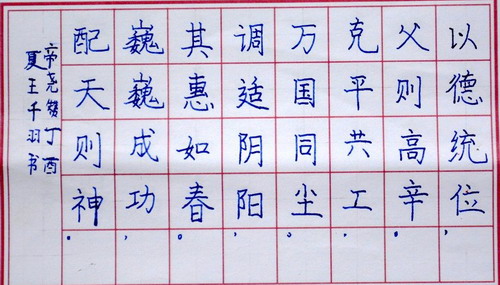 以德统位，
父则高辛。
克平共工，
万国同尘。
调适阴阳，
其惠如春。
巍巍成功，
配天则神。
帝尧赞丁酉
夏王千羽书